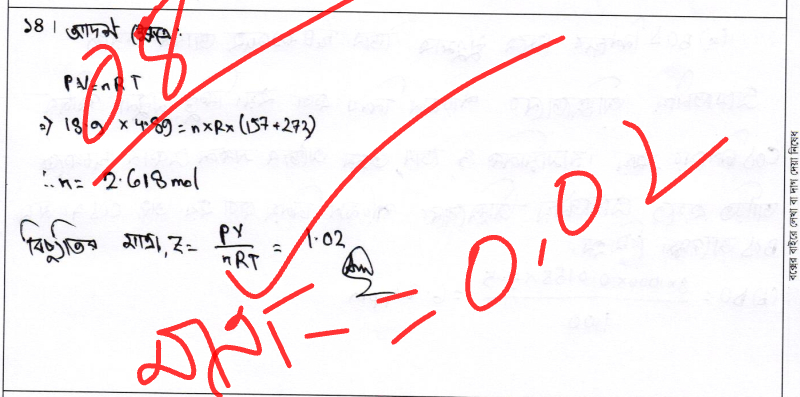 ১৪। আদর্শ ক্ষেত্রে:
08
PV = nRT
⇒ 18.9 × 4.99 = n×R×(157+273)
∴ n = 2.618 mol
বিচ্যুতির মাত্রা, Z = PV/nRT = 1.02 Am
মাত্রা = 0.02
বক্সের বাইরে লেখা বা দাগ দেয়া নিষেধ